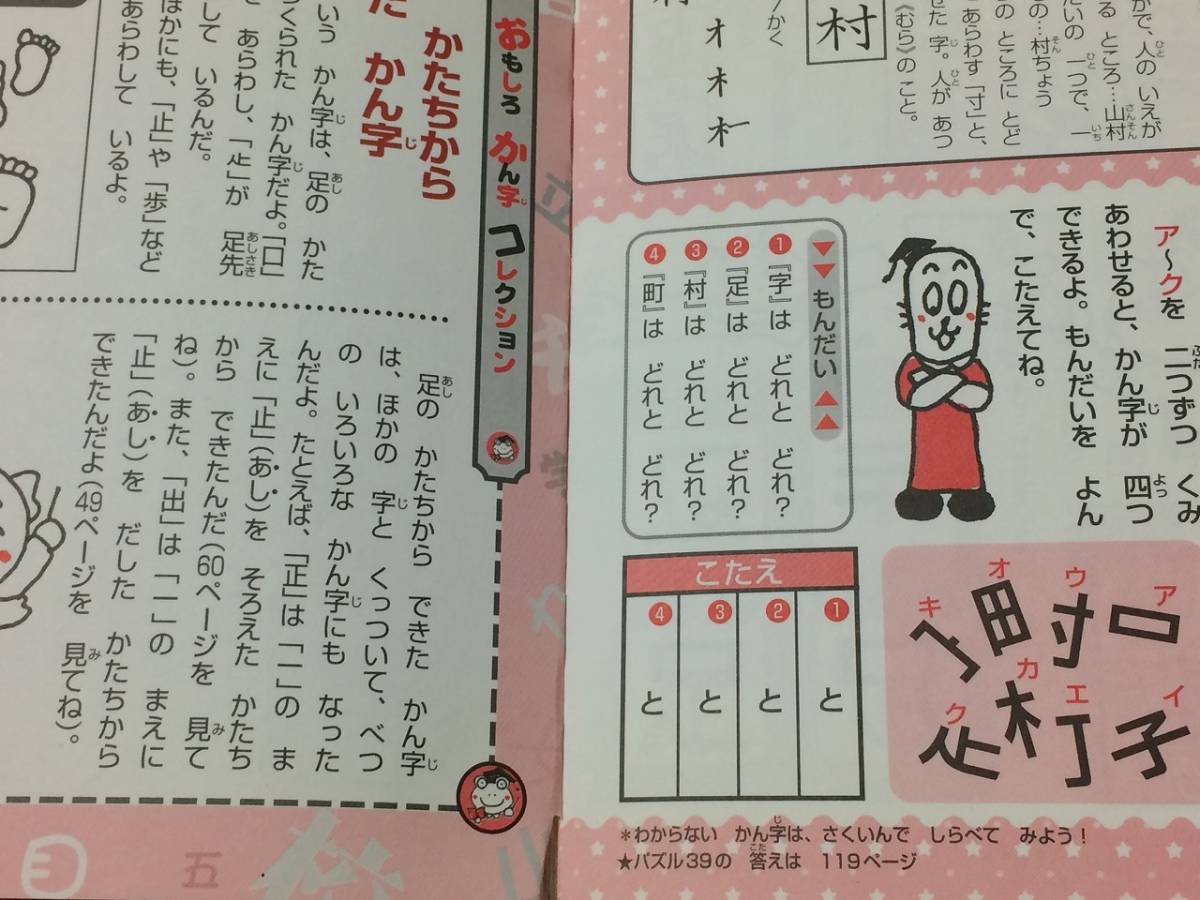 村
かで、人の いえが
る ところ…山村
たいの 一つで、一
の…村ちょう
あらわす「寸」と、
の ところに とど
せた 字。人が あつ
《むら》のこと。
かく
ア〜クを 二つずつ くみ
あわせると、かん字が 四つ
できるよ。もんだいを よん
で、こたえてね。
もんだい
1 『字』は どれと どれ?
2 『足』は どれと どれ?
3 『村』は どれと どれ?
4 『町』は どれと どれ?
こたえ
1 と
2 と
3 と
4 と
ア 口
イ 子
ウ 寸
エ 丁
オ 田
カ 木
キ 宀
ク 龰
*わからない かん字は、さくいんで しらべて みよう!
★パズル39の 答えは 119ページ
おもしろ かん字 コレクション
かたちから
た かん字
いう かん字は、足の かた
つくられた かん字だよ。「口」
を あらわし、「龰」が 足先
して いるんだ。
ほかにも、「止」や「歩」など
あらわして いるよ。
足の かたちから できた かん字
は、ほかの 字と くっついて、べつ
の いろいろな かん字にも なった
んだよ。たとえば、「正」は「一」の ま
えに「止」(あし)を そろえた かたち
から できたんだ(60ページを 見て
ね)。また、「出」は「一」の まえに
「止」(あし)を だした かたちから
できたんだよ(49ページを 見てね)。
立
学
五